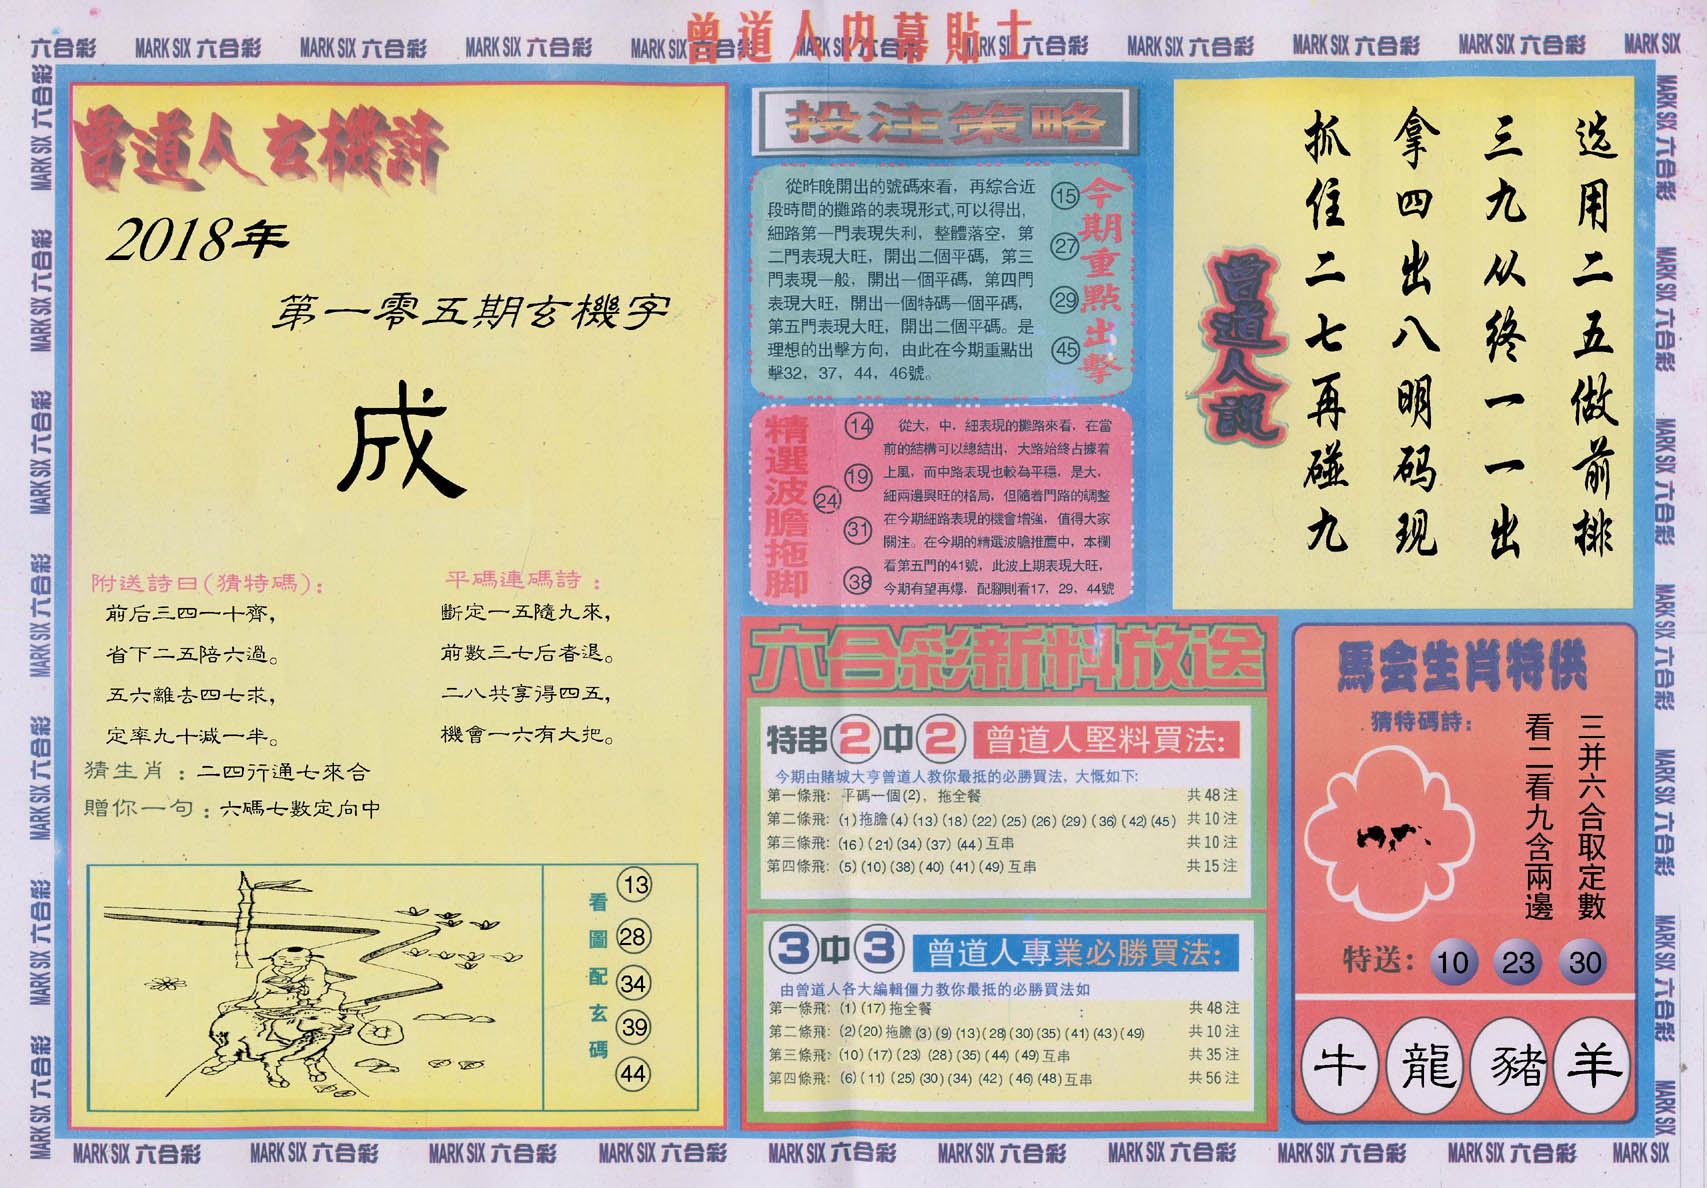 曾道人内幕貼士
六合彩 MARK SIX 六合彩 MARK SIX 六合彩 MARK SIX 六合彩 MARK SIX 六合彩 MARK SIX 六合彩 MARK SIX 六合彩 MARK SIX 六合彩 MARK SIX 六合彩 MARK SIX 六合彩 MARK SIX
曾道人玄機詩
2018年
第一零五期玄機字
成
附送詩曰(猜特碼):
前后三四一十齊,
省下二五陪六過。
五六離去四七求,
定率九十減一半。
平碼連碼詩:
斷定一五隨九來,
前數三七后者退。
二八共享得四五,
機會一六有大把。
猜生肖:二四行通七來合
贈你一句:六碼七數定向中
看圖配玄碼
13
28
34
39
44
投注策略
今期重點出擊
15
27
29
45
從昨晚開出的號碼來看，再綜合近
段時間的攤路的表現形式,可以得出,
細路第一門表現失利，整體落空，第
二門表現大旺，開出二個平碼，第三
門表現一般，開出一個平碼，第四門
表現大旺，開出一個特碼一個平碼，
第五門表現大旺，開出二個平碼。是
理想的出擊方向，由此在今期重點出
擊32，37，44，46號。
精選波膽拖脚
14
19
24
31
38
從大，中，細表現的攤路來看，在當
前的結構可以總結出，大路始終占據着
上風，而中路表現也較為平穩，是大，
細兩邊興旺的格局，但隨着門路的調整
在今期細路表現的機會增強，值得大家
關注。在今期的精選波膽推薦中，本欄
看第五門的41號，此波上期表現大旺，
今期有望再爆，配腳則看17，29，44號
六合彩新料放送
特串2中2 曾道人堅料買法:
今期由賭城大亨曾道人教你最抵的必勝買法，大慨如下:
第一條飛: 平碼一個(2)，拖全餐 共48注
第二條飛: (1)拖膽(4)(13)(18)(22)(25)(26)(29)(36)(42)(45) 共10注
第三條飛: (16)(21)(34)(37)(44)互串 共10注
第四條飛: (5)(10)(38)(40)(41)(49)互串 共15注
3中3 曾道人專業必勝買法:
由曾道人各大編輯僵力教你最抵的必勝買法如
第一條飛: (1)(17)拖全餐 共48注
第二條飛: (2)(20)拖膽(3)(9)(13)(28)(30)(35)(41)(43)(49) 共10注
第三條飛: (10)(17)(23)(28)(35)(44)(49)互串 共35注
第四條飛: (6)(11)(25)(30)(34)(42)(46)(48)互串 共56注
选用二五做前排
三九从终一一出
拿四出八明码现
抓住二七再碰九
曾道人説
馬会生肖特供
猜特碼詩:
三并六合取定數
看二看九含兩邊
特送: 10 23 30
牛 龍 豬 羊
MARK SIX 六合彩 MARK SIX 六合彩 MARK SIX 六合彩 MARK SIX 六合彩 MARK SIX 六合彩 MARK SIX 六合彩 MARK SIX 六合彩 MARK SIX 六合彩 MARK SIX 六合彩 MARK SIX
MARK SIX 六合彩 MARK SIX 六合彩 MARK SIX 六合彩 MARK SIX 六合彩 MARK SIX 六合彩 MARK SIX 六合彩 MARK SIX 六合彩
MARK SIX 六合彩 MARK SIX 六合彩 MARK SIX 六合彩 MARK SIX 六合彩 MARK SIX 六合彩 MARK SIX 六合彩 MARK SIX